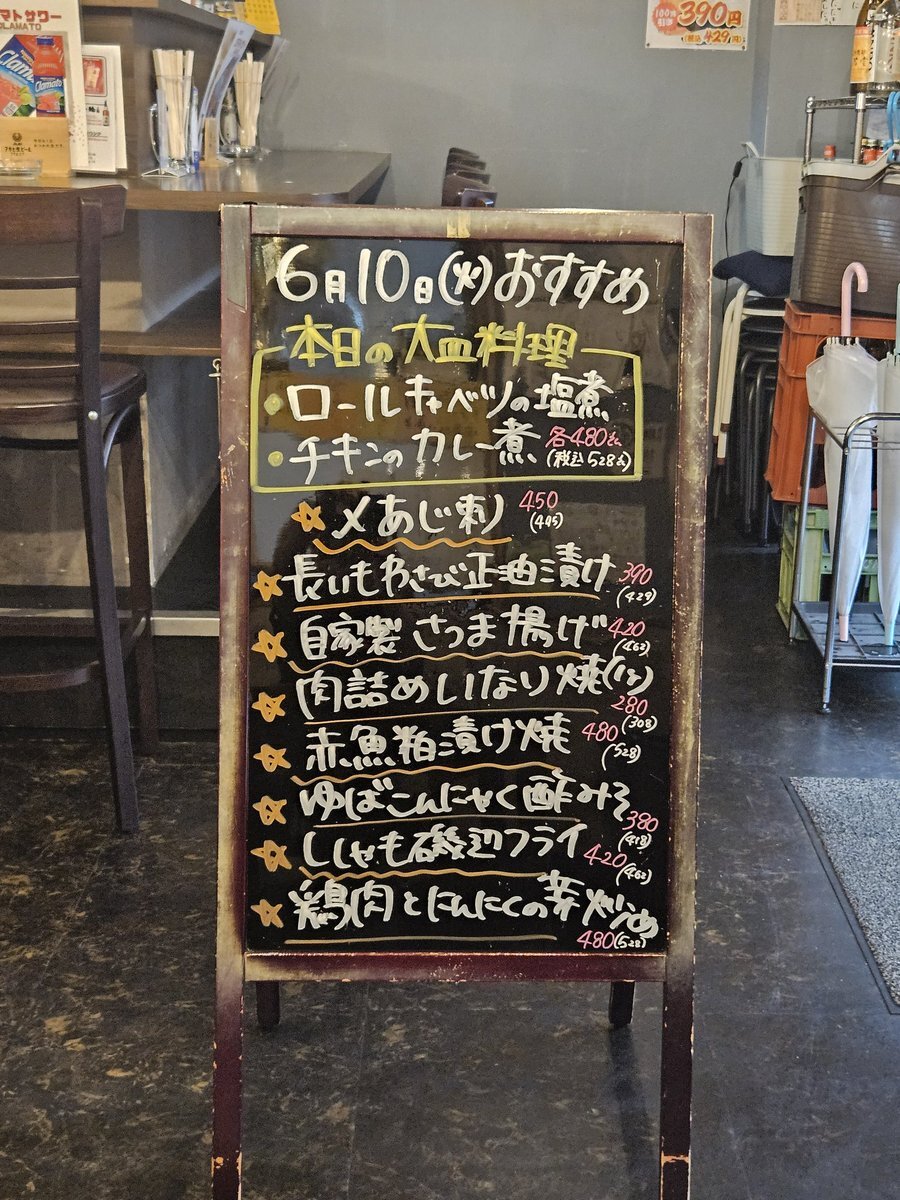 マトサワー
CLAMATO
Clamato
Clamato
390円
(税込429円)
6月10日(火)おすすめ
本日の大皿料理
・ロールキャベツの塩煮
・チキンのカレー煮 各480円
(税込528円)
☆〆あじ刺 450
(495)
☆長いもわさび正油漬け 390
(429)
☆自家製さつま揚げ 420
(462)
☆肉詰めいなり焼(1ヶ)
280
(308)
☆赤魚粕漬け焼 480
(528)
☆ゆばこんにゃく酢みそ
380
(418)
☆ししゃも磯辺フライ 420
(462)
☆鶏肉とにんにくの芽炒め
480(528)